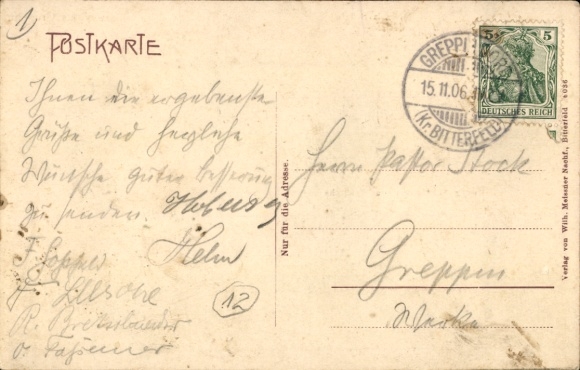 1
POSTKARTE
Ihnen die ergebenste
Grüße und herzliche
Wünsche guter Besserung
zu senden.
Helm
12
Nur für die Adresse.
Herrn Pastor Stock
Greppin
Werke
GREPPIN
15.11.06.
(Kr. BITTERFELD)
5 5
DEUTSCHES REICH
Verlag von Wilh. Meissner Nachf., Bitterfeld 4036